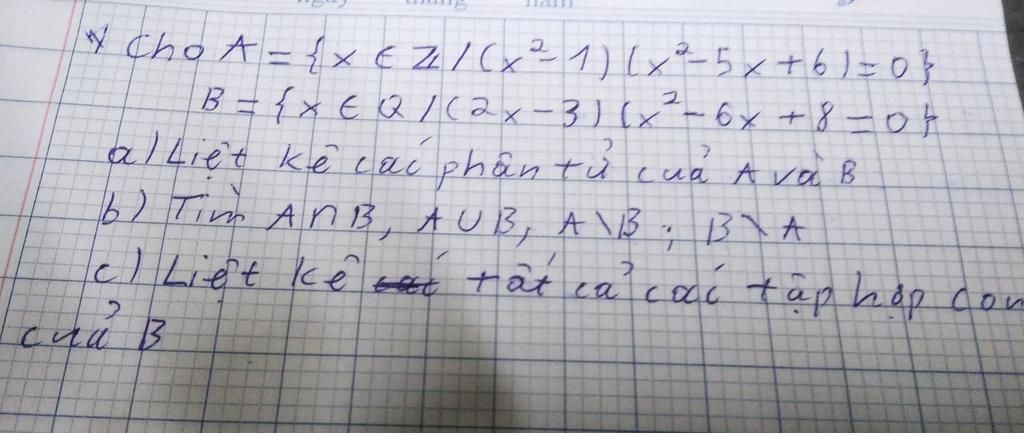 ngày tháng năm
* Cho A = {x ∈ Z / (x² - 1) (x² - 5x + 6) = 0}
B = {x ∈ Q / (2x - 3) (x² - 6x + 8 = 0}
a) Liệt kê các phần tử của A và B
b) Tìm A ∩ B, A ∪ B, A \ B ; B \ A
c) Liệt kê tất cả các tập hợp con
của B